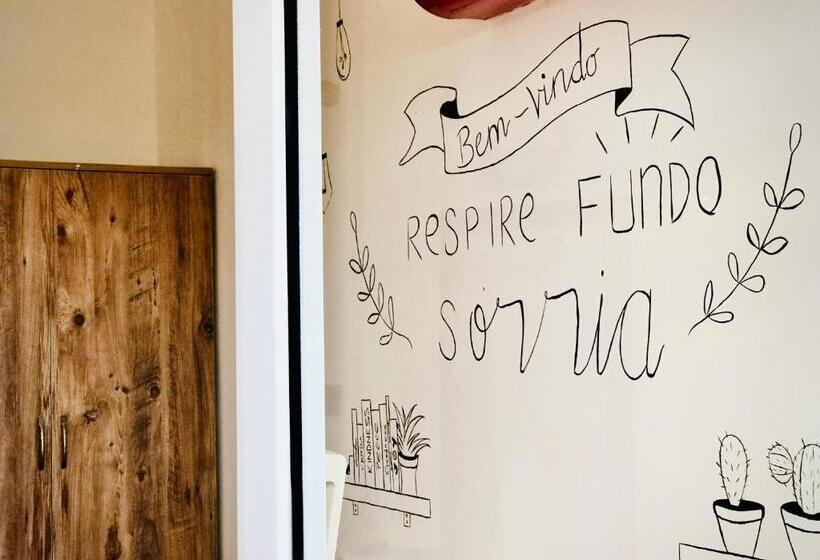 Bem-Vindo
RESPIRE FUNDO
sorria
KINDNESS